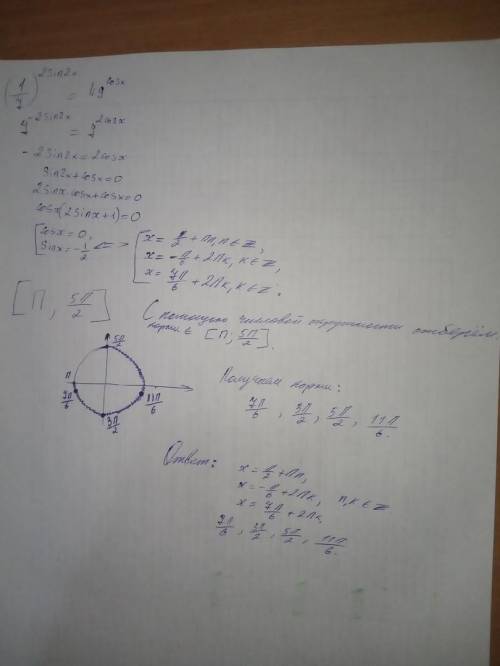 (1/7)^{2sin2x} = 49^{cosx}
7^{-2sin2x} = 7^{2cosx}
-2sin2x = 2cosx
sin2x + cosx = 0
2sinx·cosx + cosx = 0
cosx(2sinx+1) = 0
cosx = 0,
sinx = -1/2 <=>
x = π/2 + πn, n ∈ Z,
x = -π/6 + 2πk, k ∈ Z,
x = 7π/6 + 2πk, k ∈ Z.
[π; 5π/2]
С помощью числовой окружности отберём
корни ∈ [π; 5π/2].
5π/2
π
7π/6
3π/2
11π/6
Получаем корни:
7π/6, 3π/2, 5π/2, 11π/6.
Ответ:
x = π/2 + πn,
x = -π/6 + 2πk, n,k ∈ Z
x = 7π/6 + 2πk,
7π/6, 3π/2, 5π/2, 11π/6.